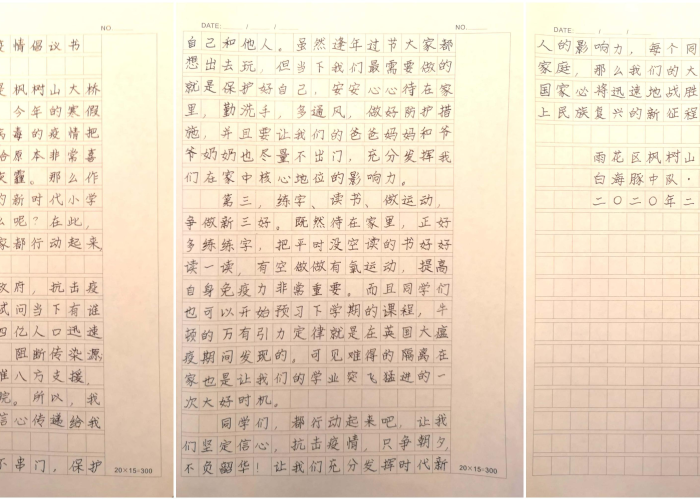 NO.
疫情倡议书
是枫树山大桥
今年的寒假
病毒的疫情把
给原本非常喜
灰霾。那么作
的新时代小学
么呢？在此，
家都行动起来，
政府，抗击疫
试问当下有谁
四亿人口迅速
阻断传染源
准八方支援，
院。所以，我
信心传递给我
不串门，保护
20×15=300
DATE: / / NO.
自己和他人。虽然逢年过节大家都
想出去玩，但当下我们最需要做的
就是保护好自己，安安心心待在家
里，勤洗手，多通风，做好防护措
施，并且要让我们的爸爸妈妈和爷
爷奶奶也尽量不出门，充分发挥我
们在家中核心地位的影响力。
第三，练字、读书、做运动，
争做新三好。既然待在家里，正好
多练练字，把平时没空读的书好好
读一读，有空做做有氧运动，提高
自身免疫力非常重要。而且同学们
也可以开始预习下学期的课程，牛
顿的万有引力定律就是在英国大瘟
疫期间发现的。可见难得的隔离在
家也是让我们的学业突飞猛进的一
次大好时机。
同学们，都行动起来吧，让我
们坚定信心，抗击疫情，只争朝夕
不负韶华！让我们充分发挥时代新
20×15=300
DATE: / /
人的影响力，每个同
家庭，那么我们的大
国家必将迅速地战胜
上民族复兴的新征程
雨花区枫树山
白海豚中队·
二〇二〇年二